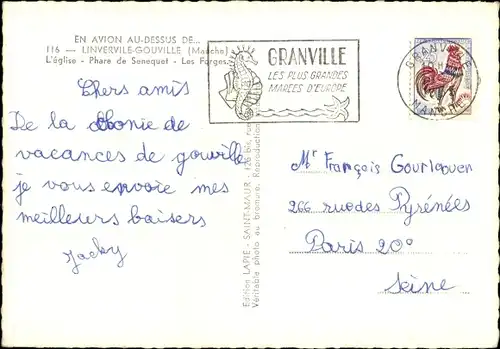 EN AVION AU-DESSUS DE...
116 — LINVERVILE-GOUVILLE (Manche)
L'église - Phare de Senequet - Les Forges.
GRANVILLE
LES PLUS GRANDES
MARÉES D'EUROPE
GRANVILLE
MANCHE
Chers amis
De la colonie de
vacances de gouville
je vous envoie mes
meilleurs baisers
Jacky
Edition LAPIE - SAINT-MAUR
Véritable photo au bromure. Reproduction
Mr François Gourlaouen
266 rue des Pyrénées
Paris 20°
Seine